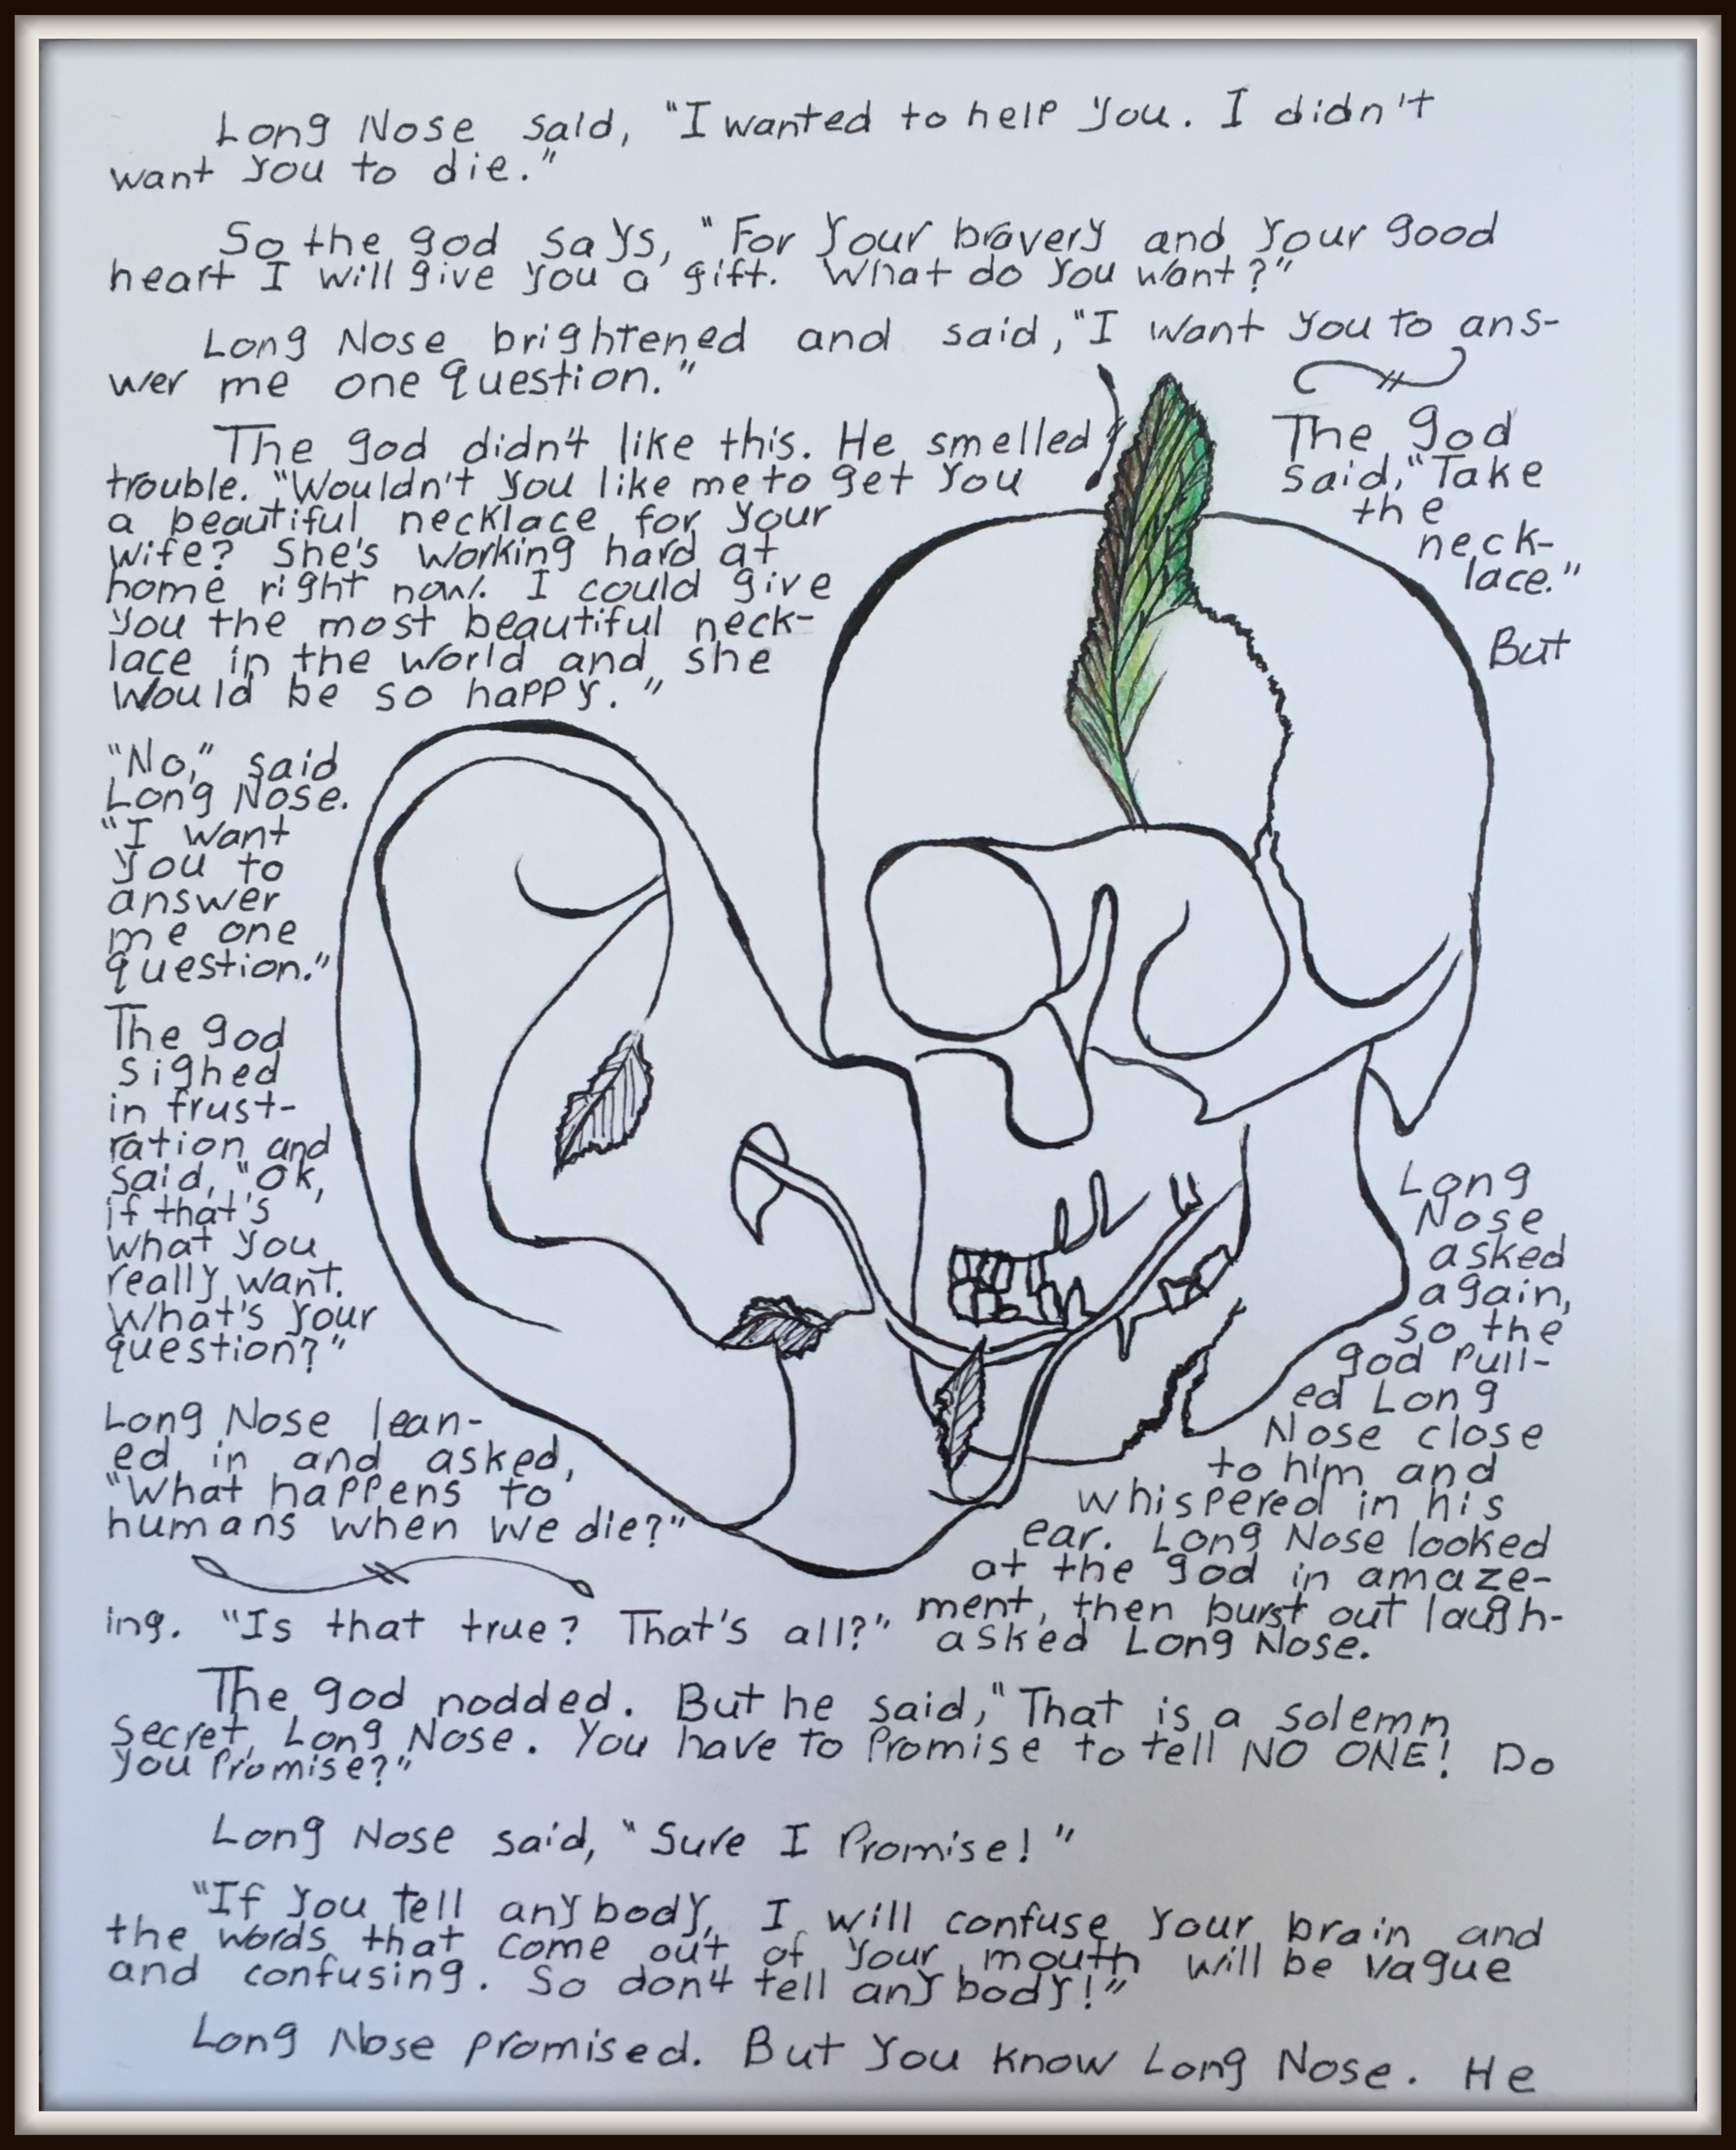 Long Nose said, "I wanted to help you. I didn't
want you to die."
So the god says, "For your bravery and your good
heart I will give you a gift. What do you want?"
Long Nose brightened and said, "I want you to ans-
wer me one question."
The god didn't like this. He smelled
trouble. "Wouldn't you like me to get you
a beautiful necklace for your
wife? She's working hard at
home right now. I could give
you the most beautiful neck-
lace in the world and she
would be so happy."
"No," said
Long Nose.
"I want
you to
answer
me one
question."
The god
sighed
in frust-
ration and
said, "Ok,
if that's
what you
really want.
What's your
question?"
Long Nose lean-
ed in and asked,
"What happens to
humans when we die?"
The god
said, "Take
the
neck-
lace."
But
Long
Nose
asked
again,
so the
god pull-
ed Long
Nose close
to him and
whispered in his
ear. Long Nose looked
at the god in amaze-
ment, then burst out laugh-
ing. "Is that true? That's all?" asked Long Nose.
The god nodded. But he said, "That is a solemn
secret, Long Nose. You have to promise to tell NO ONE! Do
you promise?"
Long Nose said, "Sure I promise!"
"If you tell anybody, I will confuse your brain and
the words that come out of your mouth will be vague
and confusing. So don't tell anybody!"
Long Nose promised. But you know Long Nose. He